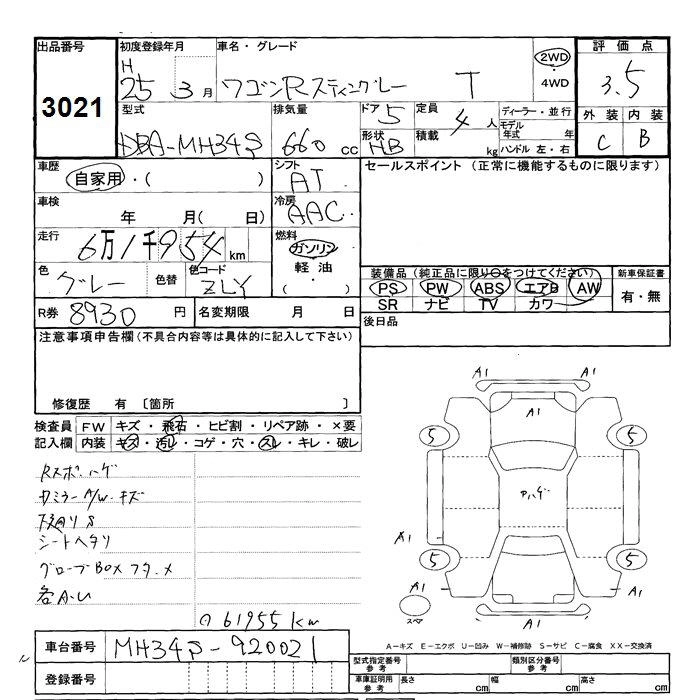 出品番号
3021
初度登録年月
H
25 3月
車名・グレード
ワゴンRスティングレー T
2WD
・
4WD
評価点
3.5
外装 内装
C B
型式
DBA-MH34S
排気量
660 cc
ドア 5
形状 HB
定員 4 人
積載 kg
ディーラー・並行
モデル年式 年
ハンドル 左・右
車歴
自家用・( )
シフト
AT
セールスポイント (正常に機能するものに限ります)
車検
年 月( 日)
冷房
AAC
走行
6万1千954km
燃料
ガソリン
軽油
・
( )
色
グレー
色替
色コード
ZLY
装備品 (純正品に限り○をつけてください)
PS PW ABS エアB AW
SR ナビ TV カワ
新車保証書
有・無
R券 8930 円
名変期限 月 日
後日品
注意事項申告欄(不具合内容等は具体的に記入して下さい)
修復歴 有 〔箇所 〕
検査員 FW キズ・飛石・ヒビ割・リペア跡・×要
記入欄 内装 キズ・汚レ・コゲ・穴・スレ・キレ・破レ
Rスポ.ハゲ
カミラーA/W.キズ
下廻りS
シートヘタリ
グローブBOXフタ.メ
各A.U
61955 km
A1 A1
A1
5 5
Pハゲ
A1 A1
5 5
A1 A1
A1
スペア
A-キズ E-エクボ U-凹み W-補修跡 S-サビ C-腐食 XX-交換済
車台番号 MH34S-920021
登録番号
型式指定番号
参考
類別区分番号
参考
車庫証明用
参考
長さ cm 幅 cm 高さ cm